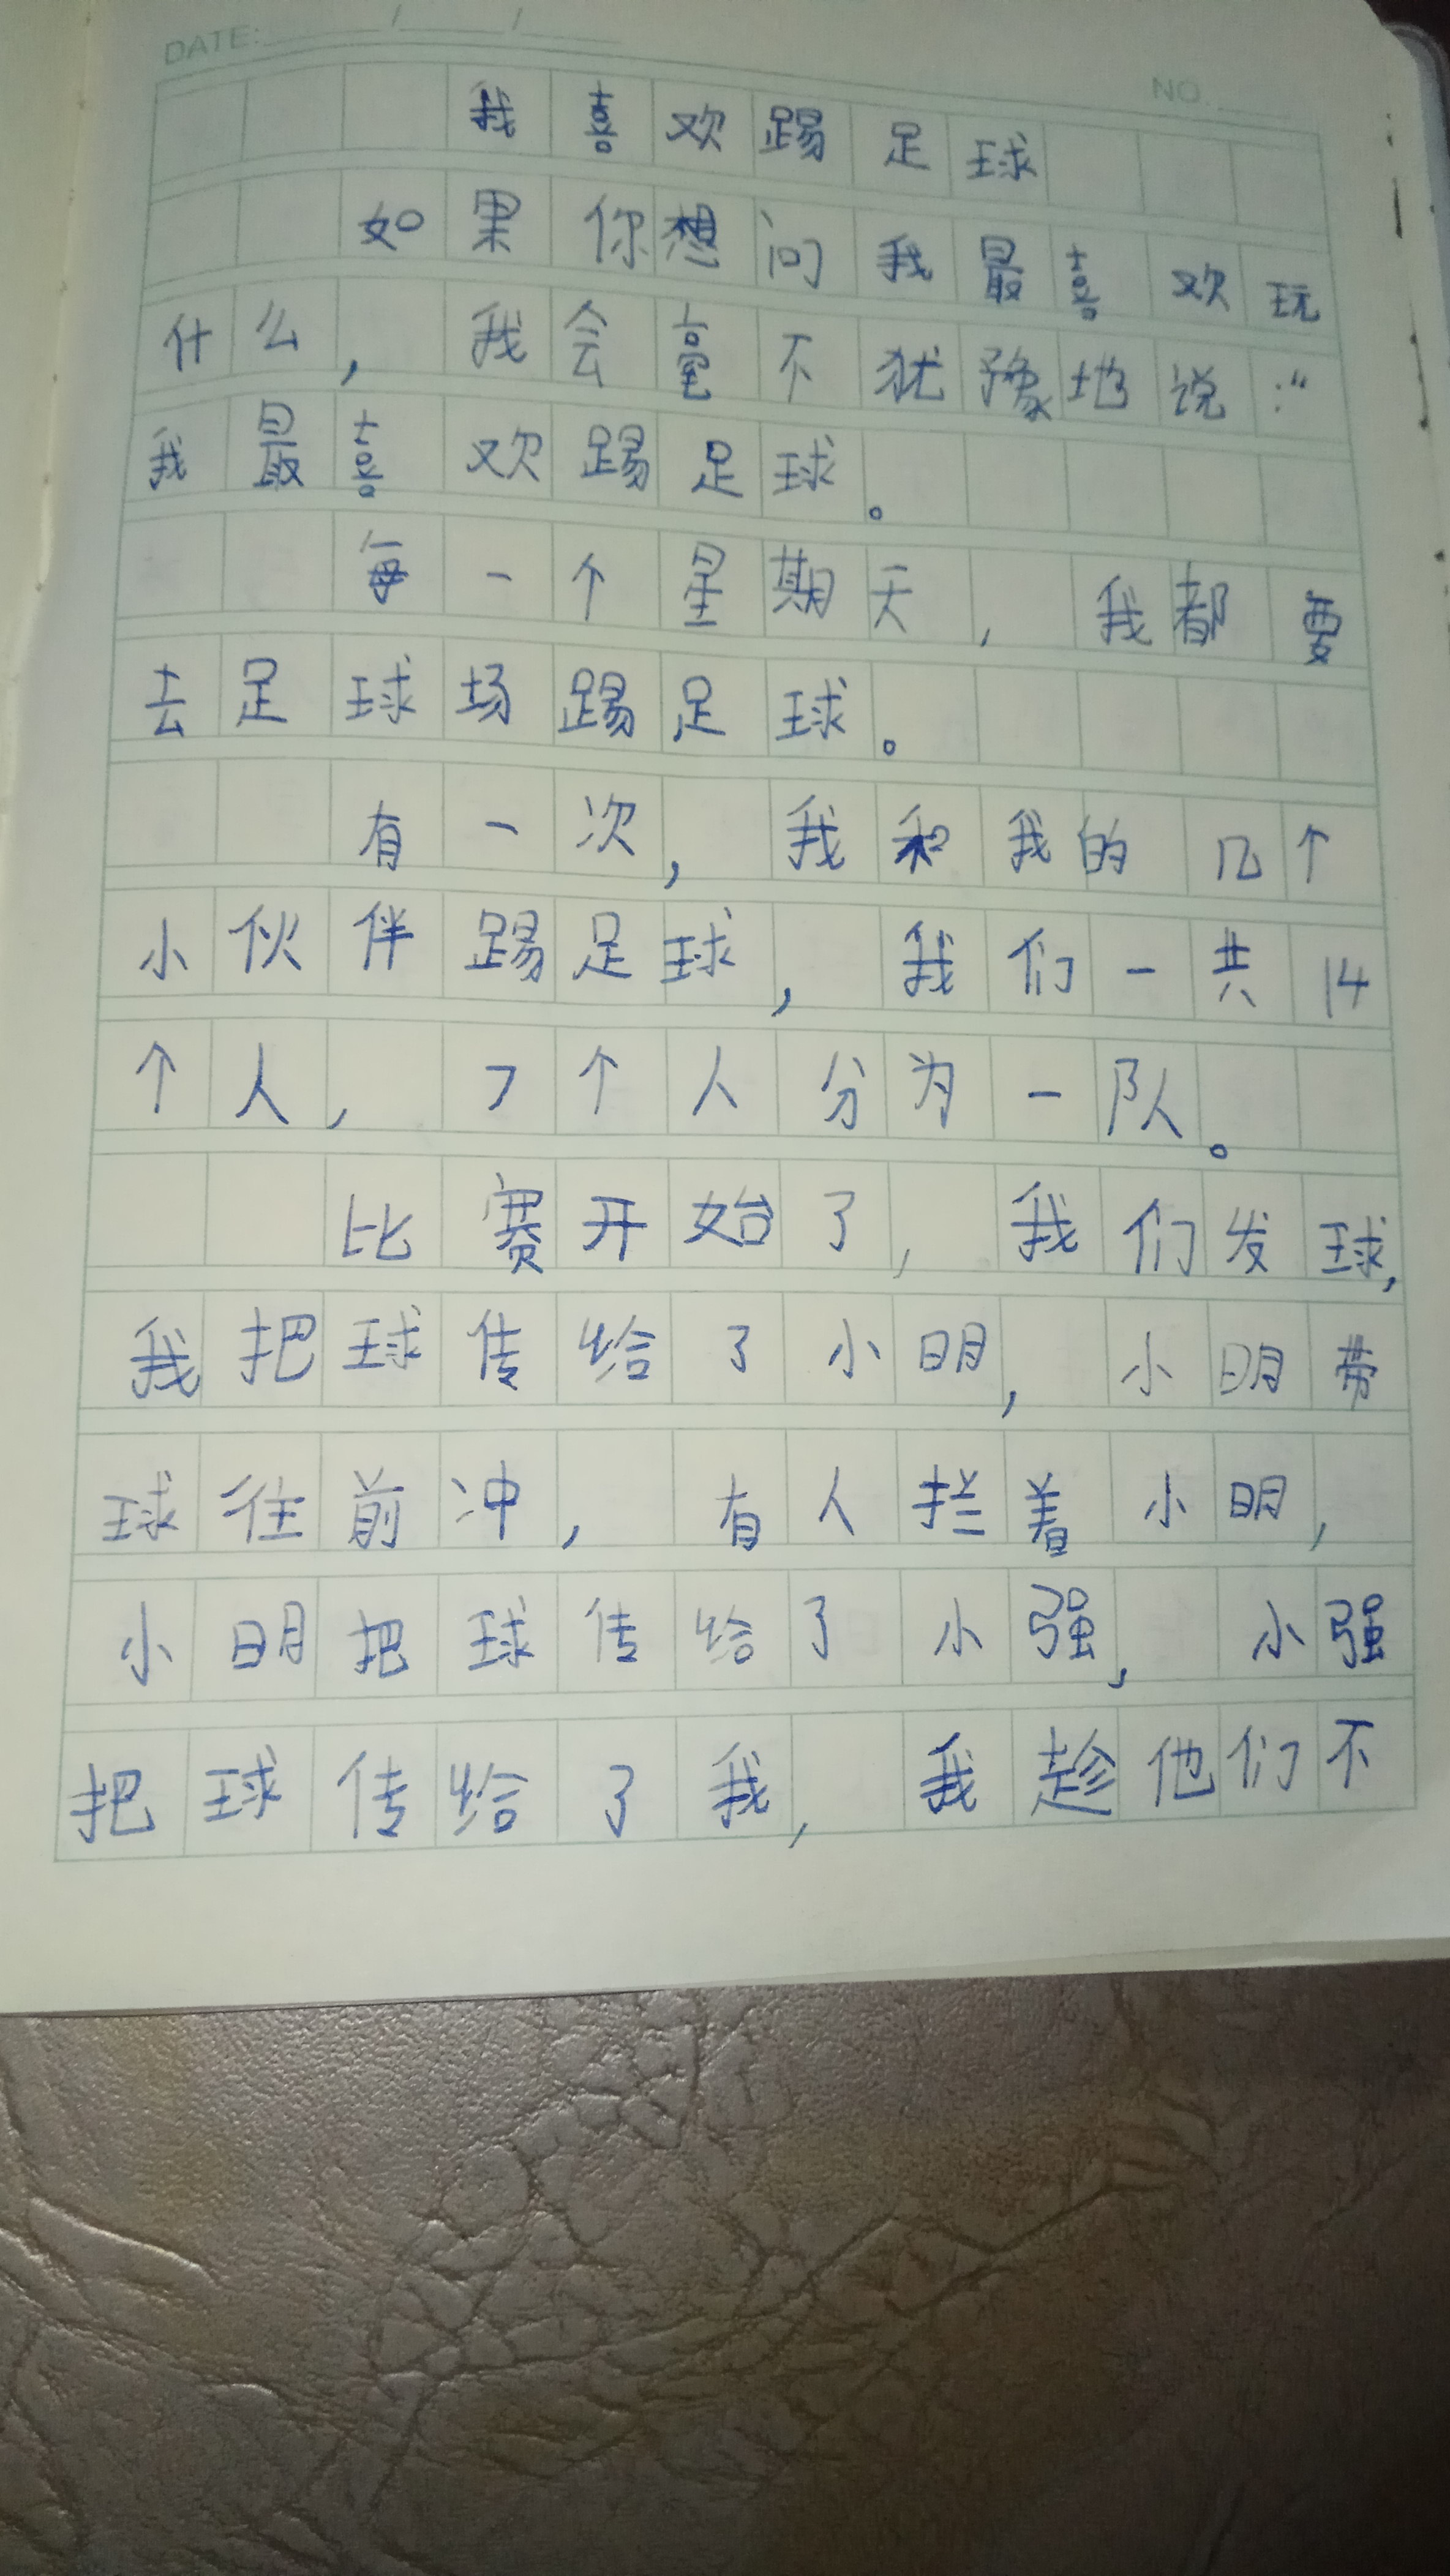 DATE: / / NO.
我喜欢踢足球
如果你想问我最喜欢玩
什么，我会毫不犹豫地说：“
我最喜欢踢足球。
每一个星期天，我都要
去足球场踢足球。
有一次，我和我的几个
小伙伴踢足球，我们一共14
个人，7个人分为一队。
比赛开始了，我们发球，
我把球传给了小明，小明带
球往前冲，有人拦着小明，
小明把球传给了小强，小强
把球传给了我，我趁他们不